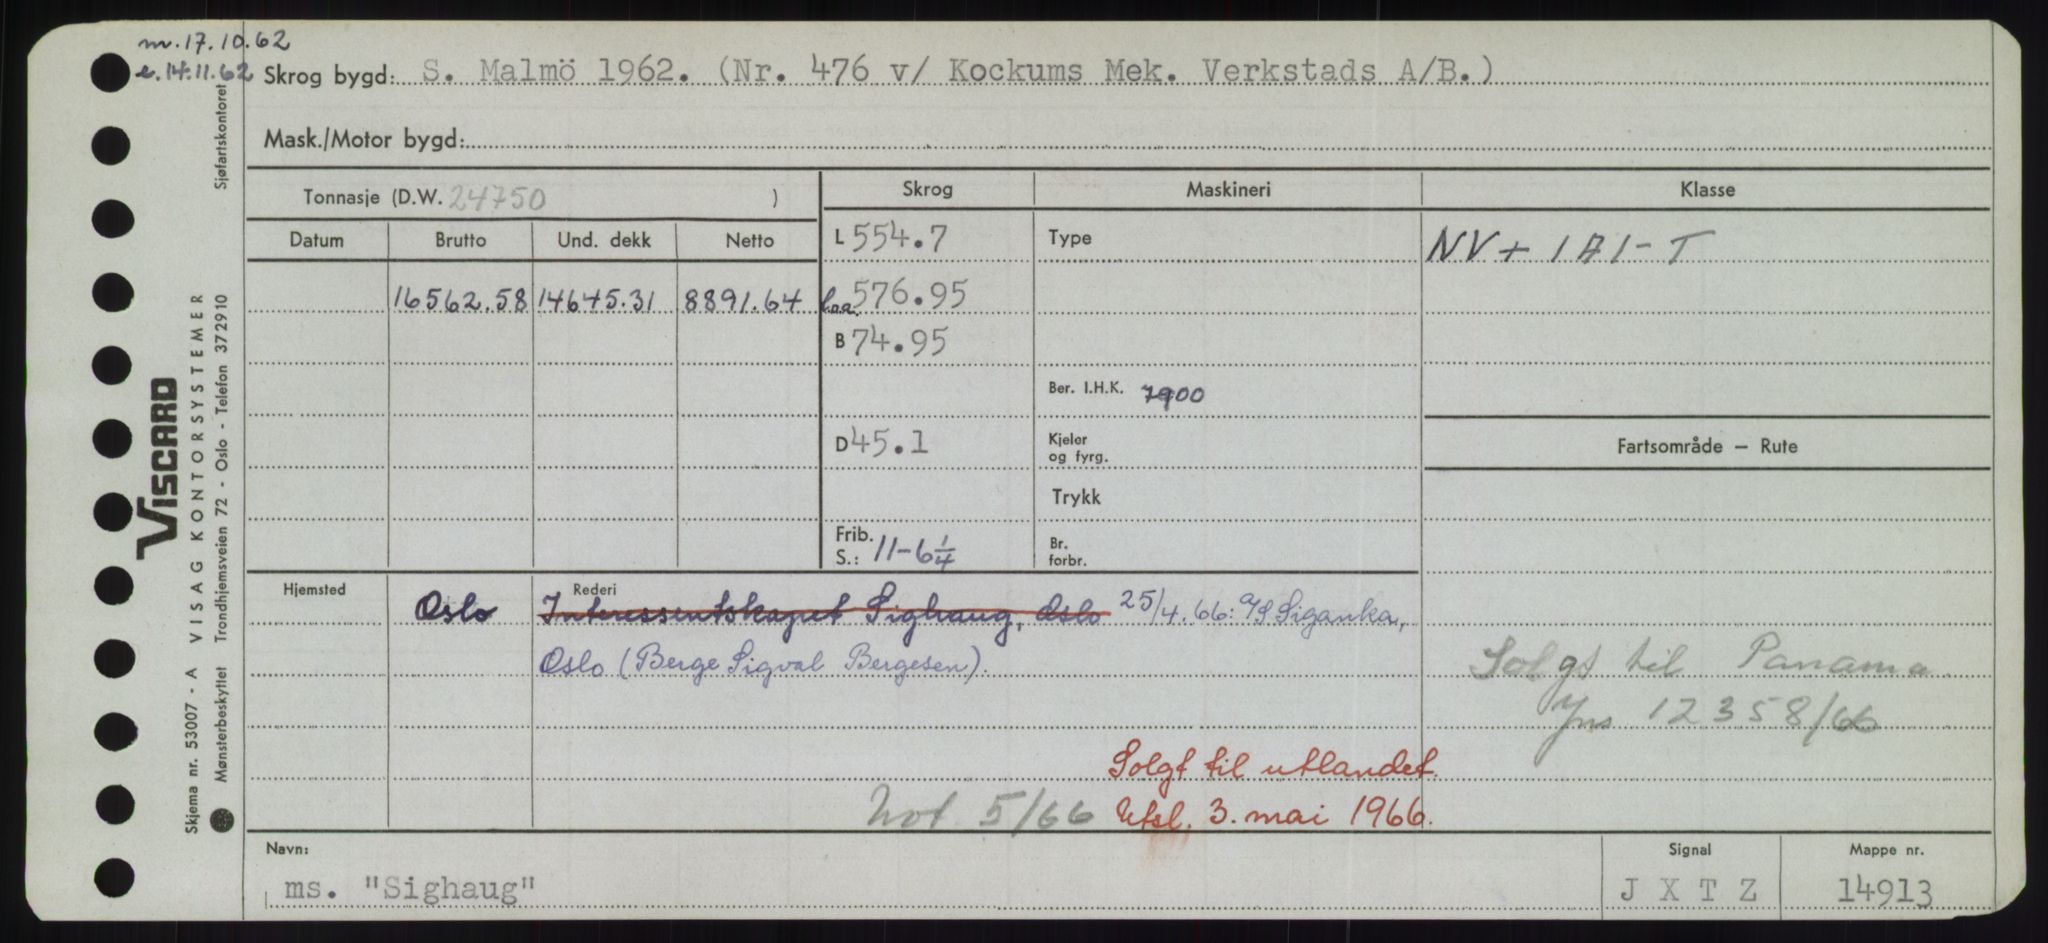 m. 17.10.62
e. 14.11.62
Skrog bygd: S. Malmö 1962. (Nr. 476 v/ Kockums Mek. Verkstads A/B.)
Mask./Motor bygd:
Tonnasje (D.W. 24750 )
Skrog
Maskineri
Klasse
Datum Brutto Und. dekk Netto
L 554.7
Type
NV + 1A1-T
16562.58 14645.31 8891.64
Loa. 576.95
B 74.95
Ber. I.H.K. 7900
D 45.1
Kjeler og fyrg.
Fartsområde — Rute
Trykk
Frib. S.: 11-6 1/4
Br. forbr.
Hjemsted Oslo
Rederi
Interessentskapet Sighaug, Oslo 25/4.66: A/S Siganka,
Oslo (Berge Sigval Bergesen).
Solgt til Panama
12358/66
Solgt til utlandet.
Not 5/66 Utsl. 3. mai 1966.
Navn:
ms. "Sighaug"
Signal
J X T Z
Mappe nr.
14913
VISCARD
Skjema nr. 53007 - A VISAG KONTORSYSTEMER
Mønsterbeskyttet Trondhjemsveien 72 - Oslo - Telefon 372910 Sjøfartskontoret